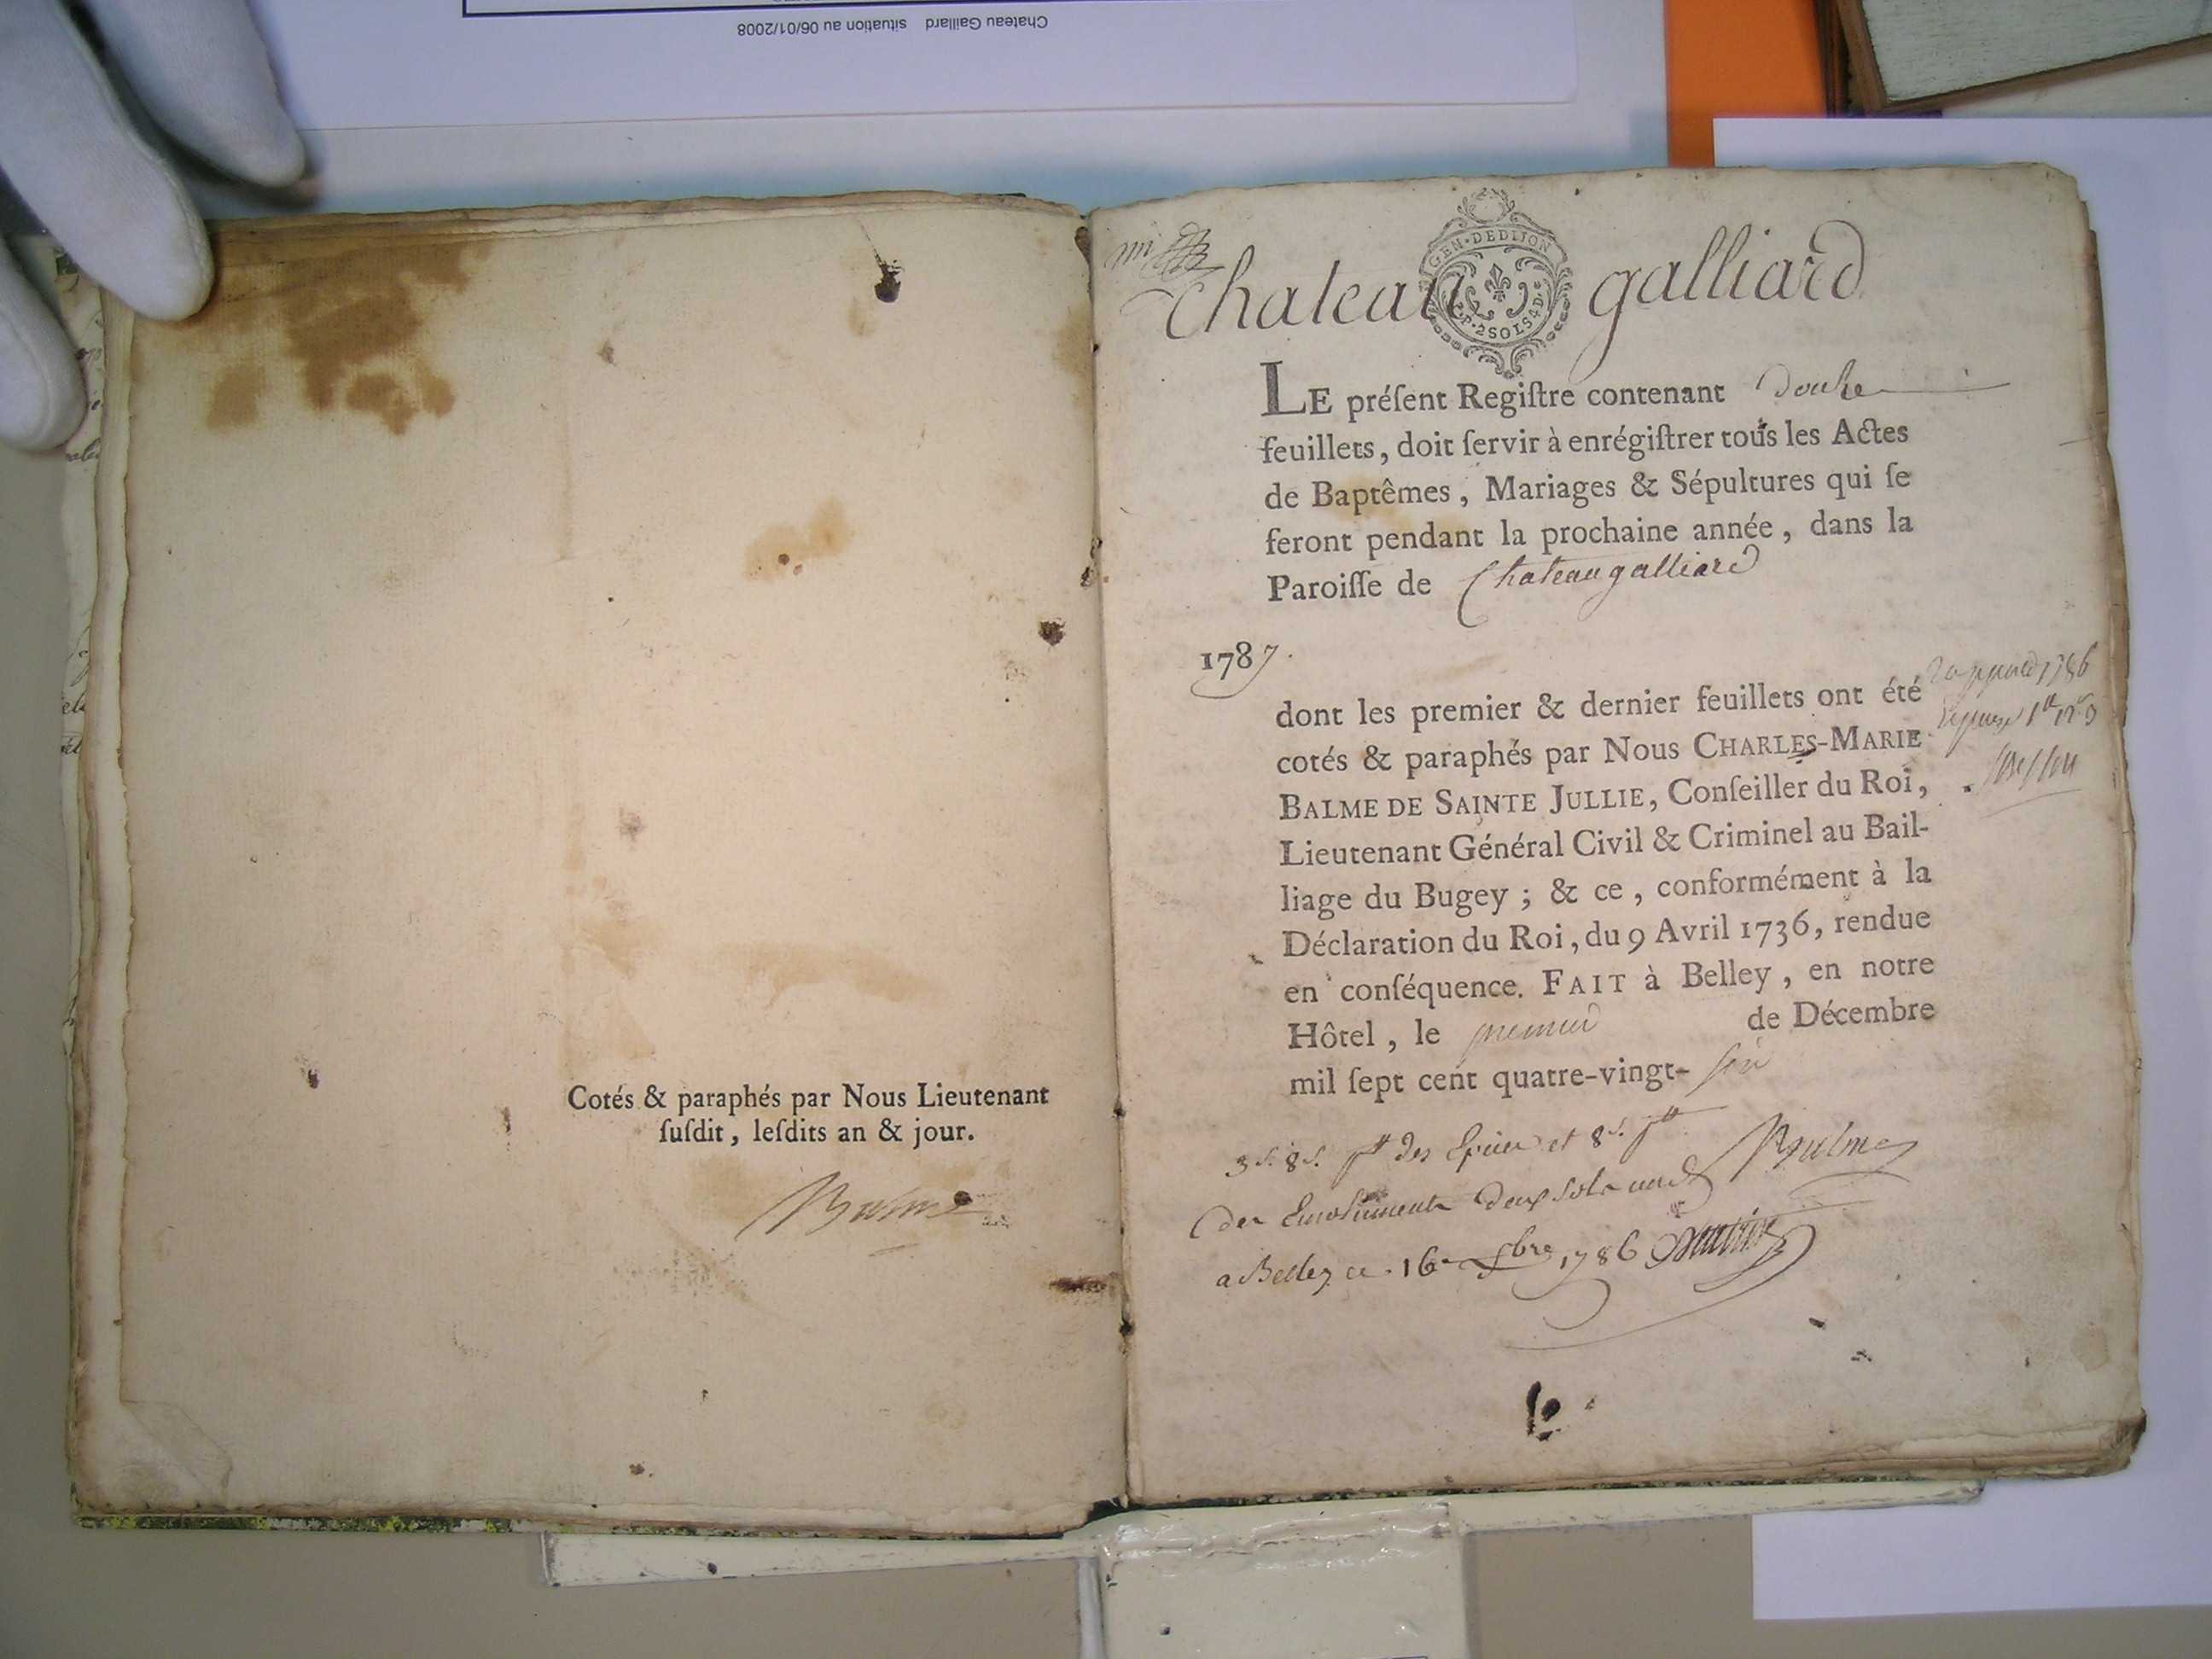 Chateau Gaillard situation au 06/01/2008
Cotés & paraphés par Nous Lieutenant
ſuſdit, leſdits an & jour.
Balme
GEN·DEDIJON
P.P. 2 SOLS 4 D.
Chateau galliard
LE préſent Regiſtre contenant douze
feuillets, doit ſervir à enrégiſtrer tous les Actes
de Baptêmes, Mariages & Sépultures qui ſe
feront pendant la prochaine année, dans la
Paroiſſe de Chateaugalliard
1787.
dont les premier & dernier feuillets ont été
cotés & paraphés par Nous CHARLES-MARIE
BALME DE SAINTE JULLIE, Conſeiller du Roi,
Lieutenant Général Civil & Criminel au Bail-
liage du Bugey ; & ce, conformément à la
Déclaration du Roi, du 9 Avril 1736, rendue
en conſéquence. FAIT à Belley, en notre
Hôtel, le premier de Décembre
mil ſept cent quatre-vingt-six
1786
3 s. 8 d. des Epices et 8 s.
Balme
des Emoluments deux sols
a Belley ce 16 1786